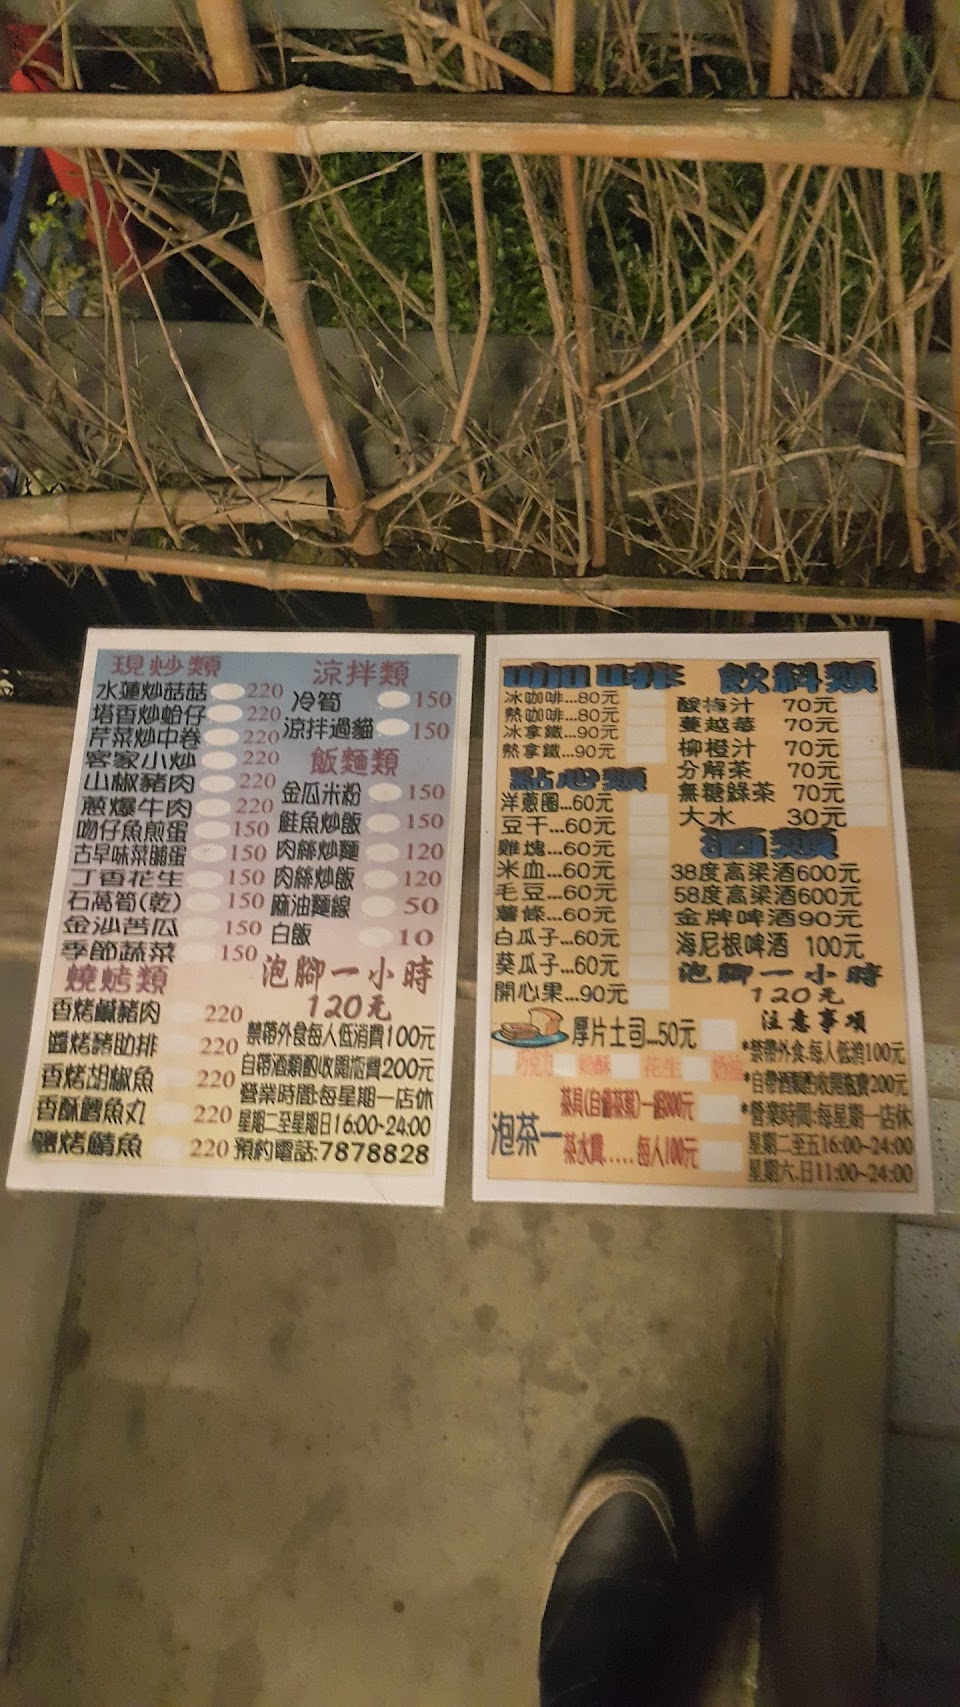 現炒類
水蓮炒菇菇 220
塔香炒蛤仔 220
芹菜炒中卷 220
客家小炒 220
山椒豬肉 220
蔥爆牛肉 220
吻仔魚煎蛋 150
古早味菜脯蛋 150
丁香花生 150
石蒿筍(乾) 150
金沙苦瓜 150
季節蔬菜 150
燒烤類
香烤鹹豬肉 220
醬烤豬肋排 220
香烤胡椒魚 220
香酥鱈魚丸 220
鹽烤鯖魚 220
涼拌類
冷筍 150
涼拌過貓 150
飯麵類
金瓜米粉 150
鮭魚炒飯 150
肉絲炒麵 120
肉絲炒飯 120
麻油麵線 50
白飯 10
泡腳一小時
120元
禁帶外食每人低消費100元
自帶酒類酌收開瓶費200元
營業時間:每星期一店休
星期二至星期日16:00~24:00
預約電話:7878828
咖啡
冰咖啡...80元
熱咖啡...80元
冰拿鐵...90元
熱拿鐵...90元
點心類
洋蔥圈...60元
豆干...60元
雞塊...60元
米血...60元
毛豆...60元
薯條...60元
白瓜子...60元
葵瓜子...60元
開心果...90元
厚片土司...50元
巧克力 奶酥 花生 奶油
泡茶一
茶具(自備茶葉)一組300元
茶水費.....每人100元
飲料類
酸梅汁 70元
蔓越莓 70元
柳橙汁 70元
分解茶 70元
無糖綠茶 70元
大水 30元
酒類
38度高梁酒600元
58度高梁酒600元
金牌啤酒90元
海尼根啤酒 100元
泡腳一小時
120元
注意事項
*禁帶外食.每人低消100元
*自帶酒類酌收開瓶費200元
*營業時間:每星期一店休
星期二至五16:00~24:00
星期六.日11:00~24:00